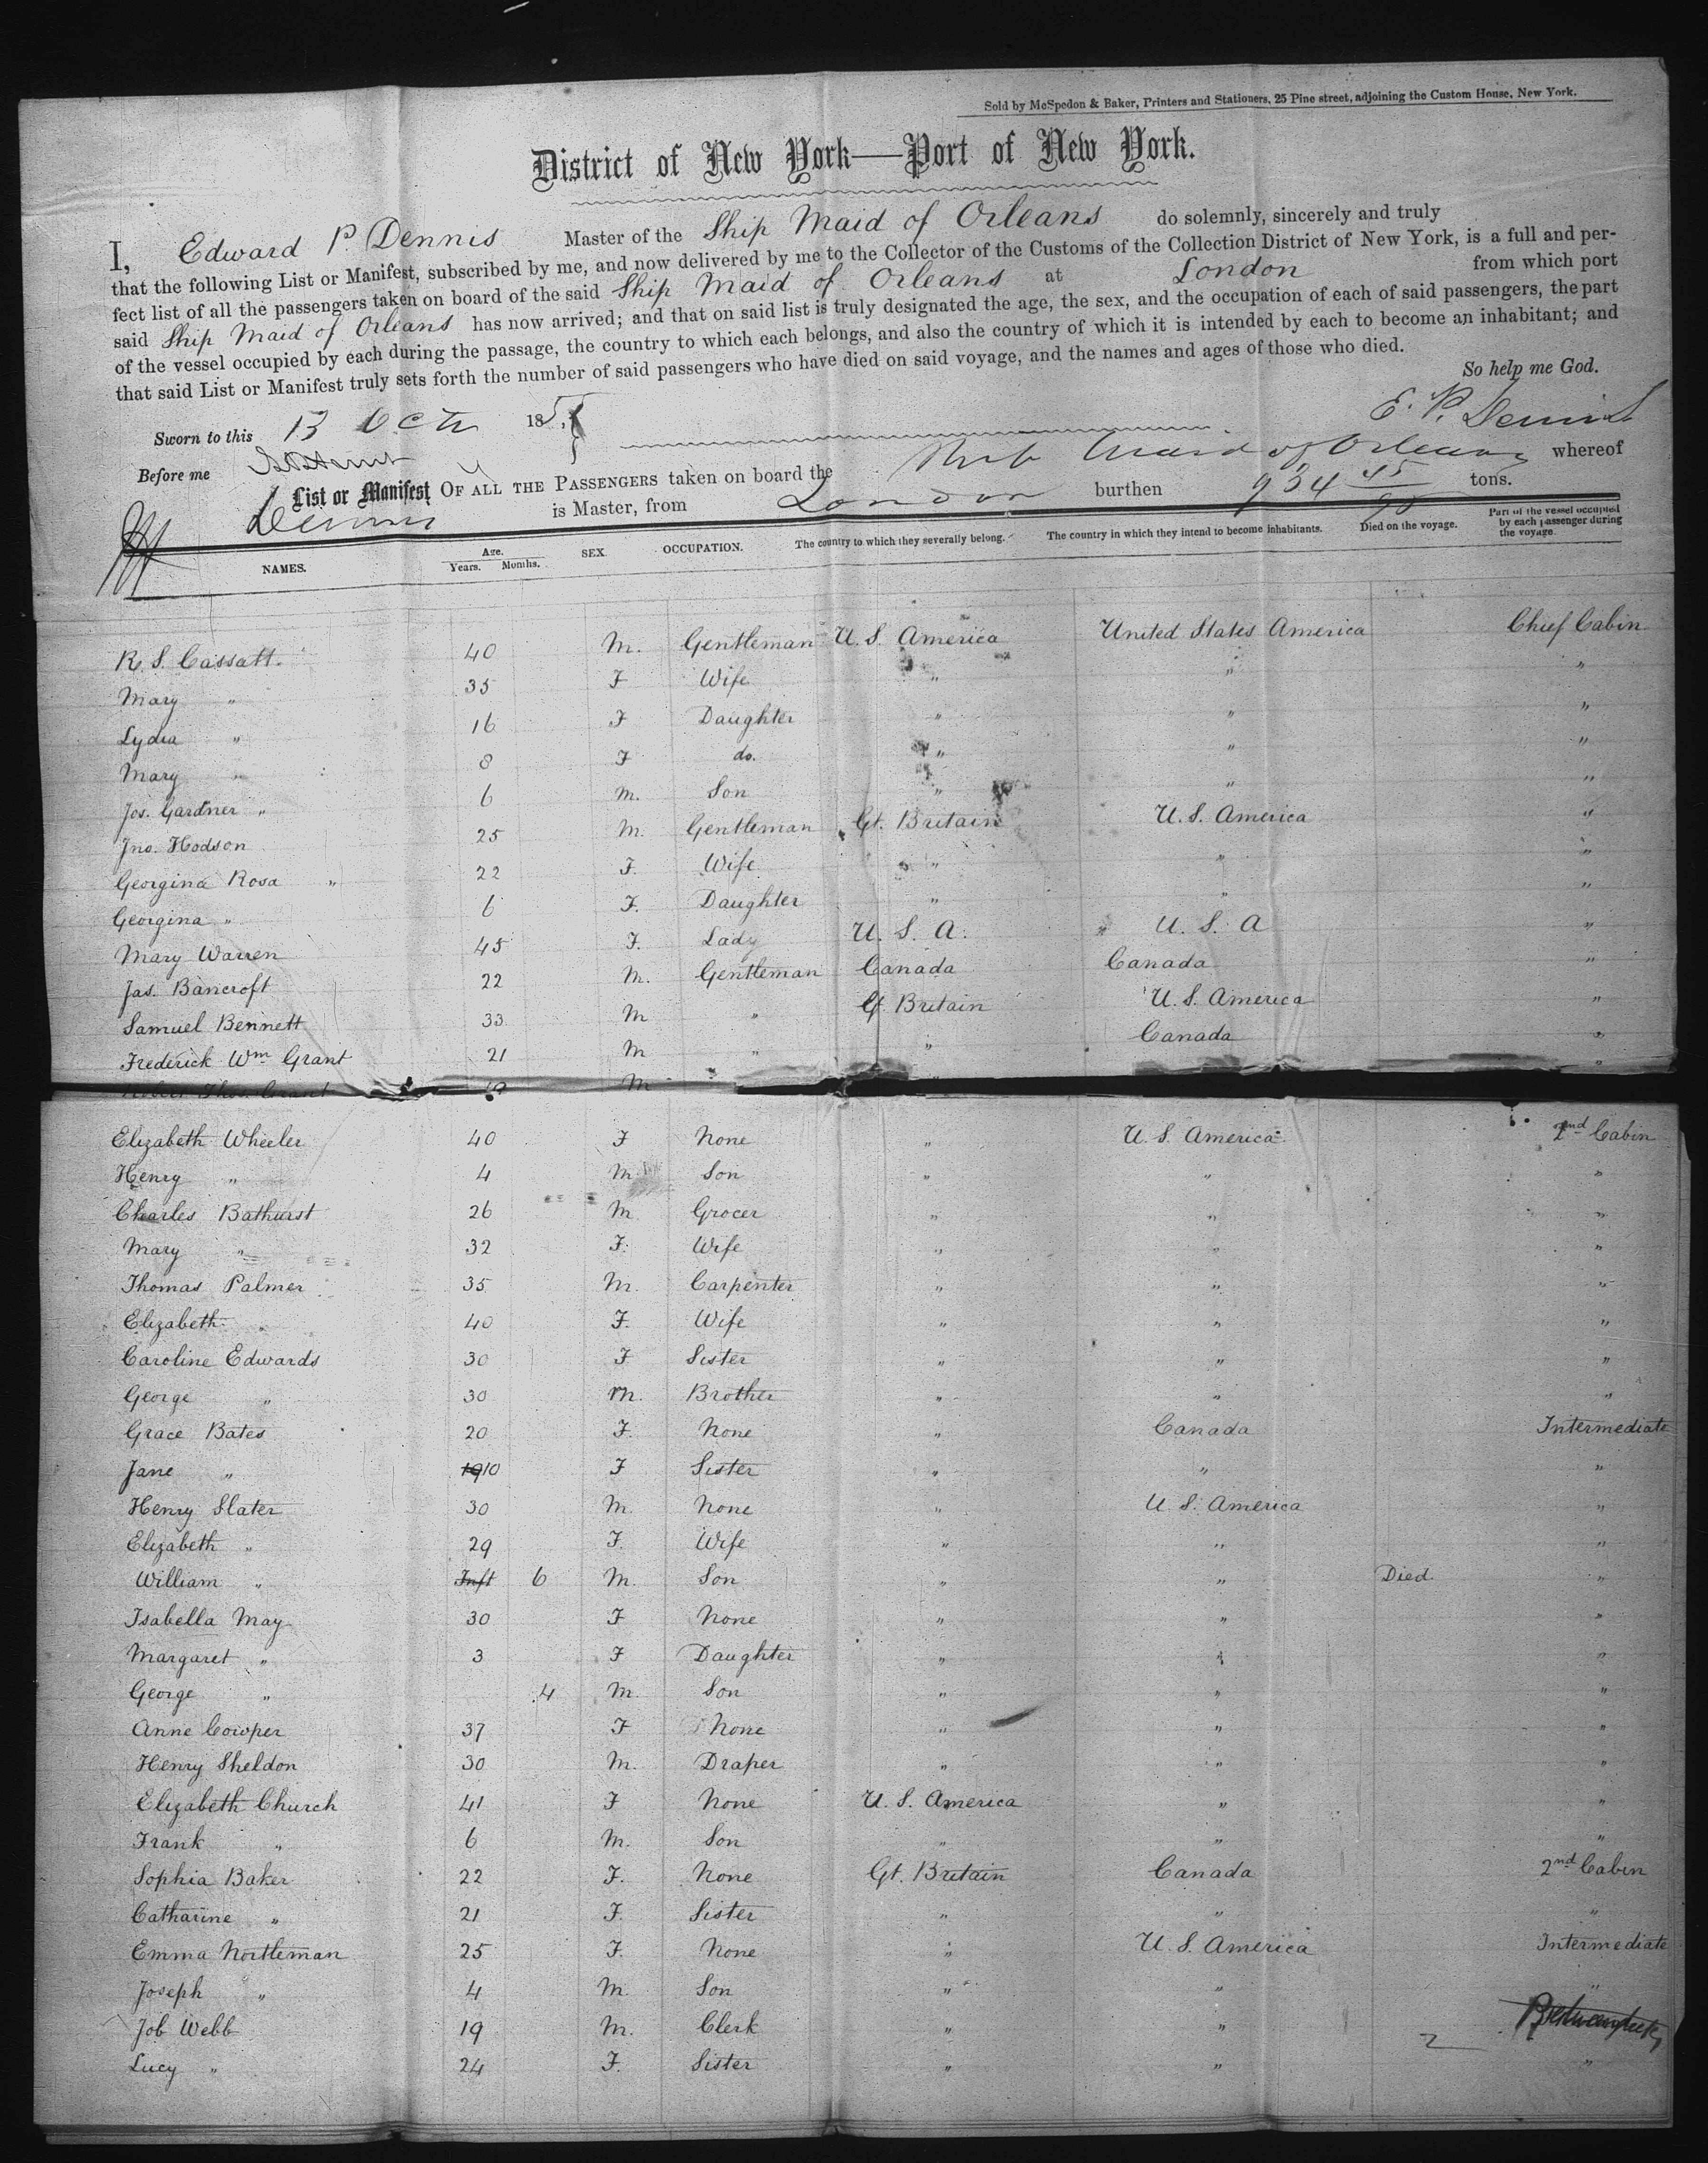 Sold by McSpedon & Baker, Printers and Stationers, 25 Pine street, adjoining the Custom House, New York.
District of New York—Port of New York.
I, Edward P. Dennis Master of the Ship Maid of Orleans do solemnly, sincerely and truly
that the following List or Manifest, subscribed by me, and now delivered by me to the Collector of the Customs of the Collection District of New York, is a full and per-
fect list of all the passengers taken on board of the said Ship Maid of Orleans at London from which port
said Ship Maid of Orleans has now arrived; and that on said list is truly designated the age, the sex, and the occupation of each of said passengers, the part
of the vessel occupied by each during the passage, the country to which each belongs, and also the country of which it is intended by each to become an inhabitant; and
that said List or Manifest truly sets forth the number of said passengers who have died on said voyage, and the names and ages of those who died.
So help me God.
Sworn to this 13 Oct 185 E. P. Dennis
Before me
List or Manifest OF ALL THE PASSENGERS taken on board the Ship Maid of Orleans whereof
Dennis is Master, from London burthen 934 45/95 tons.
NAMES. Age. Years. Months. SEX. OCCUPATION. The country to which they severally belong. The country in which they intend to become inhabitants. Died on the voyage. Part of the vessel occupied by each passenger during the voyage.
R. S. Cassatt. 40 M. Gentleman U. S. America United States America Chief Cabin
Mary " 35 F Wife " " "
Lydia " 16 F Daughter " " "
Mary " 8 F do. " " "
Jos. Gardner " 6 M. Son " " "
Jno. Hodson 25 M. Gentleman Gt. Britain U. S. America "
Georgina Rosa " 22 F. Wife " " "
Georgina " 6 F. Daughter " " "
Mary Warren 45 F. Lady U. S. A. U. S. A "
Jas. Bancroft 22 M. Gentleman Canada Canada "
Samuel Bennett 33 M " Gt. Britain U. S. America "
Frederick Wm Grant 21 M " " Canada "
Thos. Grant 19 M " "
Elizabeth Wheeler 40 F None " U. S. America 2nd Cabin
Henry " 4 M Son " " "
Charles Bathurst 26 M Grocer " " "
Mary " 32 F. Wife " " "
Thomas Palmer 35 M. Carpenter " " "
Elizabeth " 40 F. Wife " " "
Caroline Edwards 30 F Sister " " "
George " 30 M. Brother " " "
Grace Bates 20 F. None " Canada Intermediate
Jane " 19 10 F Sister " " "
Henry Slater 30 M. None " U. S. America "
Elizabeth " 29 F. Wife " " "
William " Inft 6 M. Son " " Died "
Isabella May 30 F None " " "
Margaret " 3 F Daughter " " "
George " 4 M. Son " " "
Anne Cowper 37 F None " " "
Henry Sheldon 30 M. Draper " " "
Elizabeth Church 41 F None U. S. America " "
Frank " 6 M. Son " " "
Sophia Baker 22 F. None Gt. Britain Canada 2nd Cabin
Catharine " 21 F. Sister " " "
Emma Nortleman 25 F. None " U. S. America Intermediate
Joseph " 4 M. Son " " "
Job Webb 19 M. Clerk " "
Lucy " 24 F. Sister " " "